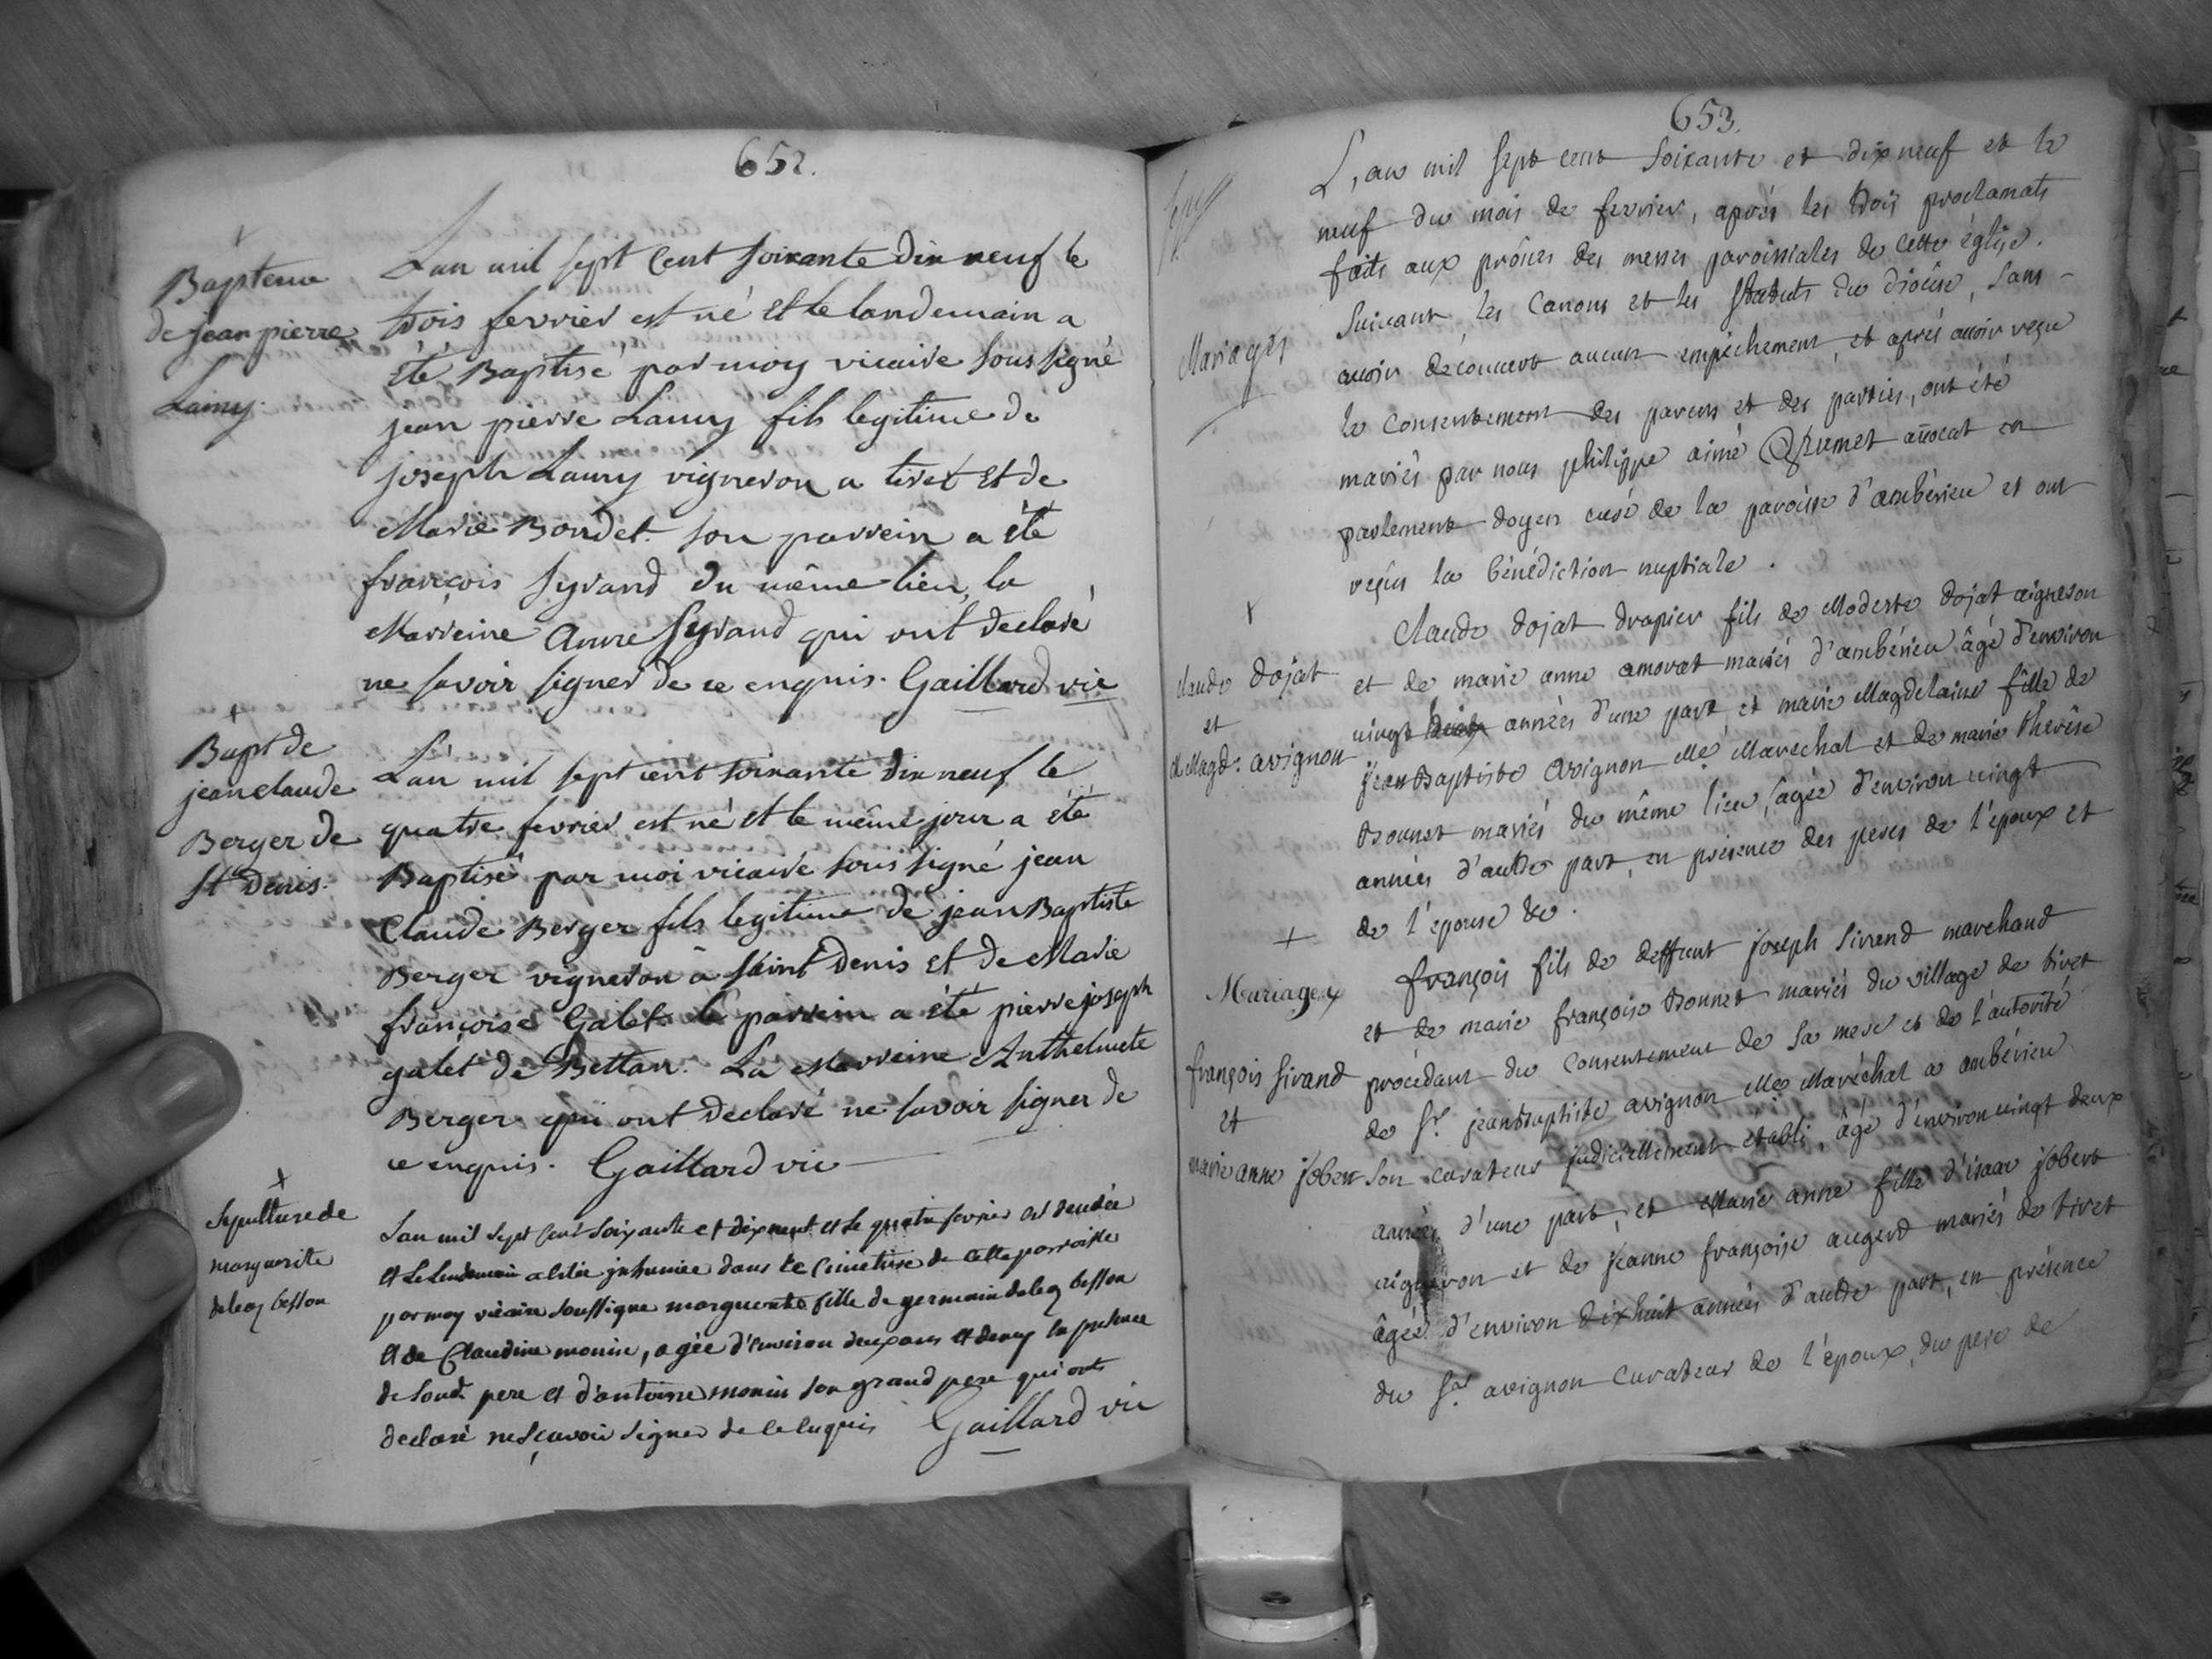 652.
Bapteme
de jean pierre
Lamy.
Lan mil sept Cent soixante dix neuf le
trois fevrier est né et le landemain a
été Baptisé par moy vicaire sous signé
jean pierre Lamy fils legitime de
joseph Lamy vigneron a tiret et de
Marie Bondet. son parrein a été
françois syrand du même lieu, la
Marreine Anne Syrand qui ont declaré
ne savoir signer de ce enquis. Gaillard vic
Bapt de
jean claude
Berger de
St Denis.
L'an mil sept cent soixante dix neuf le
quatre fevrier est né et le même jour a été
Baptisé par moi vicaire sous signé jean
Claude Berger fils legitime de jean Baptiste
Berger vigneron à saint Denis et de Marie
françoise Galet. le parrein a été pierre joseph
galet de Bettan. La Marreine Anthelmete
Berger qui ont declaré ne savoir signer de
ce enquis. Gaillard vic
Sepulture de
marguerite
beston
Lan mil sept cent soixante et dix neuf et le quatre fevrier est decedée
et le lendemain a étée inhumée dans le cimetiere de cette parroisse
par moy vicaire soussigne marguerite fille de germain beston
et de Claudine monin, agée d'environ deux ans et demy en presence
de soud. pere et d'antoine monin son grand pere qui ont
declaré ne sçavoir signer de ce enquis Gaillard vic
653.
L'an mil sept cent soixante et dix neuf et le
neuf du mois de fevrier, après les trois proclamats
faits aux prônes des messes paroissiales de cette église.
Suivant les Canons et les Statuts du diocèse, sans
avoir découvert aucun empêchement, et après avoir reçu
le consentement des parens et des parties, ont été
mariés par nous philippe aimé Grumet avocat en
parlement doyen curé de la paroisse d'ambérieu et ont
reçus la bénédiction nuptiale.
Mariages
Claude dojat
et
Magd: avignon
Claude dojat drapier fils de Modeste dojat vigneron
et de marie anne amorat mariés d'ambérieu âgé d'environ
vingt années d'une part, et marie Magdelaine fille de
Jean Baptiste avignon Me Maréchal et de marie thérèse
Bonnet mariés du même lieu, âgée d'environ vingt
années d'autre part, en présence des peres de l'époux et
de l'épouse &c.
Mariages
françois Sirand
et
marie anne jobert
françois fils de deffunt joseph Sirand marchand
et de marie françoise Bonnet mariés du village de tiret
procédant du consentement de sa mere et de l'autorité
de Sr. jean Baptiste avignon Me Maréchal a ambérieu
son curateur judiciellement établi, âgé d'environ vingt deux
années d'une part, et Marie anne fille d'isaac jobert
vigneron et de jeanne françoise augerd mariés de tiret
âgée d'environ dix huit années d'autre part, en présence
du Sr. avignon curateur de l'époux, du pere de